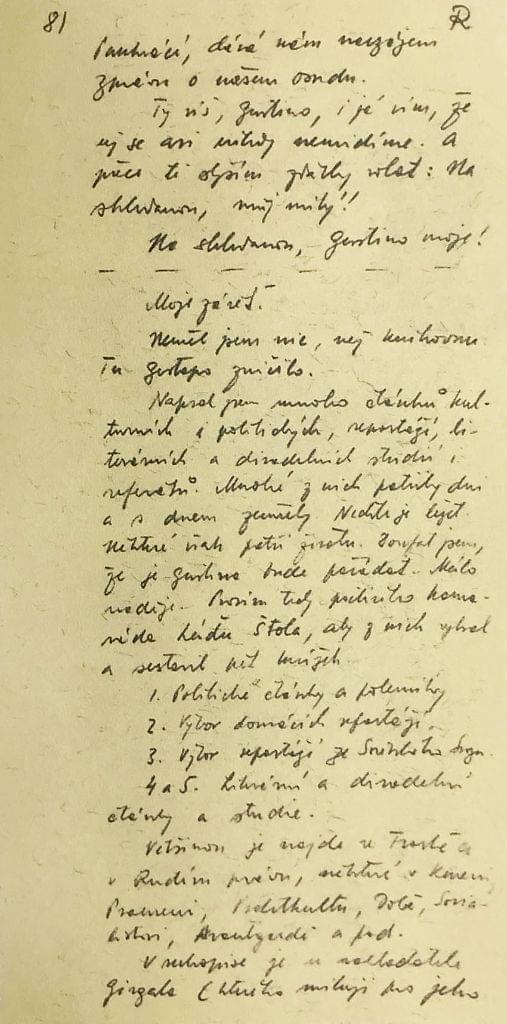 81 R
Pankráci, dává nám navzájem
zprávu o našem osudu.
Ty víš, Gustino, i já vím, že
už se asi nikdy neuvidíme. A
přece tě slyším zdálky volat: Na
shledanou, můj milý!
Na shledanou, Gustino moje!
Moje závěť.
Neměl jsem nic, než knihovnu
Tu gestapo zničilo.
Napsal jsem mnoho článků kul-
turních i politických, reportáží, li-
terárních a divadelních studií i
referátů. Mnohé z nich patřily dni
a s dnem zemřely. Nechte je ležet.
Některé však patří životu. Doufal jsem,
že je Gustina bude pořádat. Málo
naděje. Prosím tedy poctivého kama-
ráda Láďu Štola, aby z nich vybral
a sestavil pět knížek
1. Politické články a polemiky
2. Výbor domácích reportáží.
3. Výbor reportáží ze Sovětského Svazu
4 a 5. Literární a divadelní
články a studie.
Většinou je najde v Tvorbě a
v Rudém právu, některé v Kmeni,
Prameni, Proletkultu, Době, Socia-
listovi, Avantgardě a pod.
V rukopise je u nakladatele
Girgala (kterého miluji pro jeho